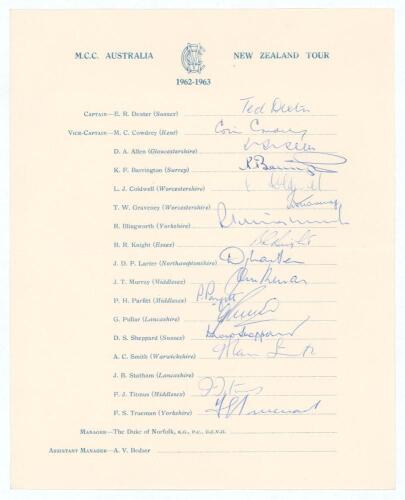 M.C.C. AUSTRALIA NEW ZEALAND TOUR
1962-1963
CAPTAIN—E. R. Dexter (Sussex) Ted Dexter
VICE-CAPTAIN—M. C. Cowdrey (Kent) Colin Cowdrey
D. A. Allen (Gloucestershire)
K. F. Barrington (Surrey) K. Barrington
L. J. Coldwell (Worcestershire) L Coldwell
T. W. Graveney (Worcestershire) T W Graveney
R. Illingworth (Yorkshire)
B. R. Knight (Essex) B R Knight
J. D. F. Larter (Northamptonshire) D Larter
J. T. Murray (Middlesex) John Murray
P. H. Parfitt (Middlesex) P. Parfitt
G. Pullar (Lancashire)
D. S. Sheppard (Sussex) David Sheppard
A. C. Smith (Warwickshire) Alan Smith
J. B. Statham (Lancashire)
F. J. Titmus (Middlesex) F J Titmus
F. S. Trueman (Yorkshire) F S Trueman
MANAGER—The Duke of Norfolk, K.G., P.C., G.C.V.O.
ASSISTANT MANAGER—A. V. Bedser